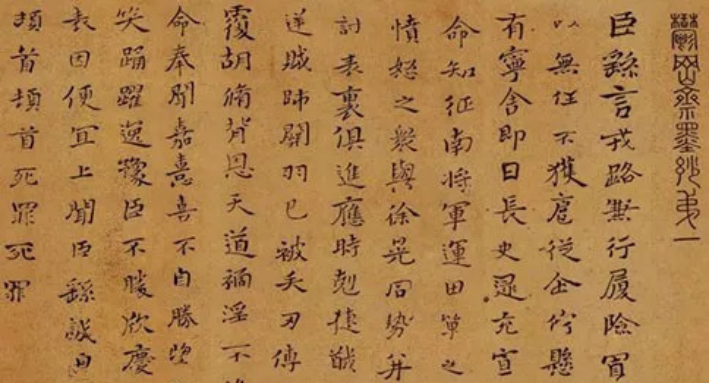 鬱岡齋墨妙弟一
臣繇言戎路兼行履險冒
以無任不獲扈從企佇懸
有寧舍即日長史逮充宣
命知征南將軍運田單之
憤怒之衆與徐晃同勢并
討表裏俱進應時剋捷馘
逆賊帥關羽已被矢刃傅
覆胡脩背恩天道禍淫不
命奉聞嘉憙喜不自勝望
笑踊躍逸豫臣不勝欣慶
表因便宜上聞臣繇誠
頓首頓首死罪死罪